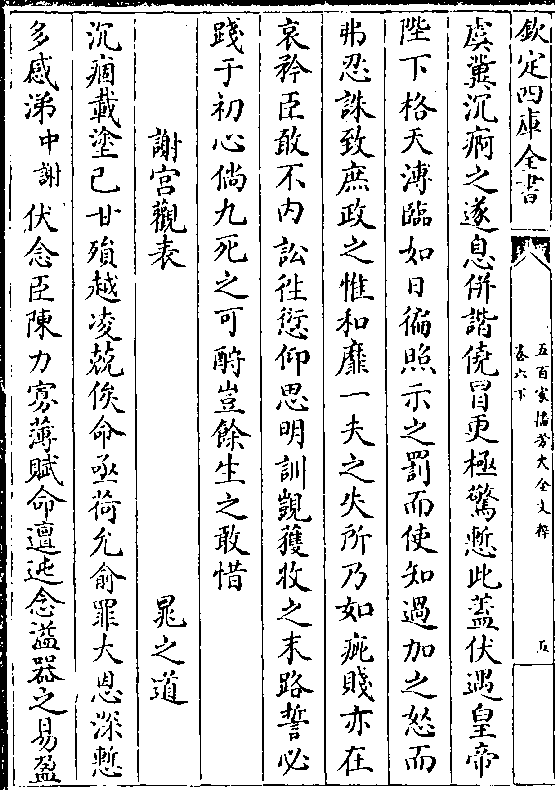 欽定四庫全書
五百家播芳大全文粹
卷六下
五
虞冀沉痾之遂息併諧僥冒更極驚慙此蓋伏遇皇帝
陛下格天溥臨如日徧照示之罰而使知過加之怒而
弗忍誅致庶政之惟和靡一夫之失所乃如疵賤亦在
哀矜臣敢不内訟往愆仰思明訓覬獲收之末路誓必
踐于初心倘九死之可酧豈餘生之敢惜
謝宫觀表 晁之道
沉痼載塗已甘殞越凌兢俟命亟荷允俞罪大恩深慙
多感涕中謝伏念臣陳力寡薄賦命邅迍念溢器之易盈